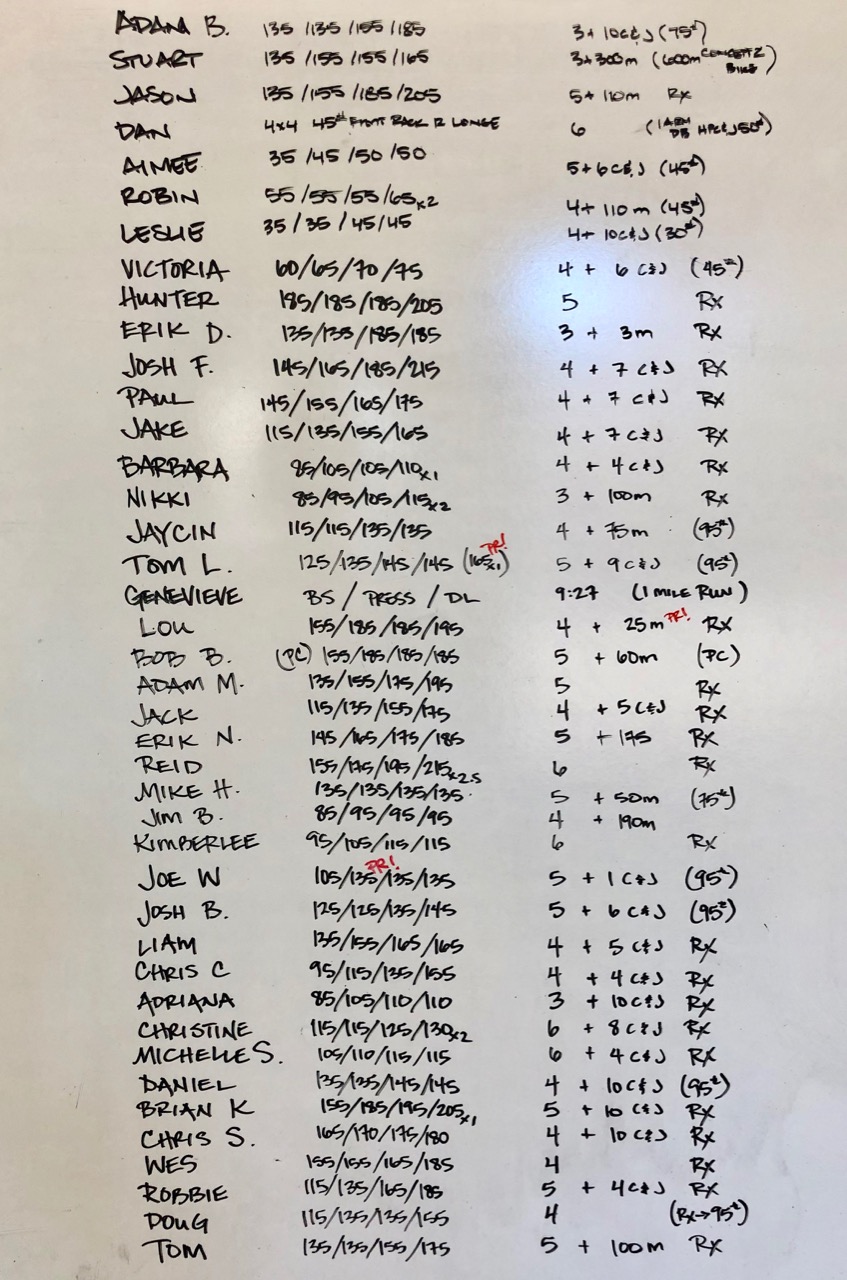 ADAM B. 135/135/155/185 3+10C&J (75#)
STUART 135/155/155/165 3+300m (600m CONCEPT 2 BIKE)
JASON 135/155/185/205 5+110m Rx
DAN 4x4 45# FRONT RACK R LUNGE 6 (1 ARM DB HPC&J 50#)
AIMEE 35/45/50/50 5+6C&J (45#)
ROBIN 55/55/55/65x2 4+110m (45#)
LESLIE 35/35/45/45 4+10C&J (30#)
VICTORIA 60/65/70/75 4 + 6 C&J (45#)
HUNTER 185/185/185/205 5 Rx
ERIK D. 135/135/185/185 3 + 3m Rx
JOSH F. 145/165/185/215 4 + 7 C&J Rx
PAUL 145/155/165/175 4 + 7 C&J Rx
JAKE 115/135/155/165 4 + 7 C&J Rx
BARBARA 85/105/105/110x1 4 + 4 C&J Rx
NIKKI 85/95/105/115x2 3 + 100m Rx
JAYCIN 115/115/135/135 4 + 75m (95#)
TOM L. 125/135/145/145 (165x1) PR! 5 + 9 C&J (95#)
GENEVIEVE BS / PRESS / DL 9:27 (1 MILE RUN)
LOU 155/185/185/195 4 + 25m PR! Rx
BOB B. (PC) 155/185/185/185 5 + 60m (PC)
ADAM M. 135/155/175/195 5 Rx
JACK 115/135/155/175 4 + 5 C&J Rx
ERIK N. 145/165/175/185 5 + 175 Rx
REID 155/175/195/215x2.5 6 Rx
MIKE H. 135/135/135/135 5 + 50m (75#)
JIM B. 85/95/95/95 4 + 190m
KIMBERLEE 95/105/115/115 6 Rx
JOE W 105/135 PR!/135/135 5 + 1 C&J (95#)
JOSH B. 125/125/135/145 5 + 6 C&J (95#)
LIAM 135/155/165/165 4 + 5 C&J Rx
CHRIS C 95/115/135/155 4 + 4 C&J Rx
ADRIANA 85/105/110/110 3 + 10 C&J Rx
CHRISTINE 115/115/125/130x2 6 + 8 C&J Rx
MICHELLE S. 105/110/115/115 6 + 4 C&J Rx
DANIEL 135/135/145/145 4 + 10 C&J (95#)
BRIAN K 155/185/195/205x1 5 + 10 C&J Rx
CHRIS S. 165/170/175/180 4 + 10 C&J Rx
WES 155/155/165/185 4 Rx
ROBBIE 115/135/165/185 5 + 4 C&J Rx
DOUG 115/135/135/155 4 (Rx→95#)
TOM 135/135/155/175 5 + 100m Rx